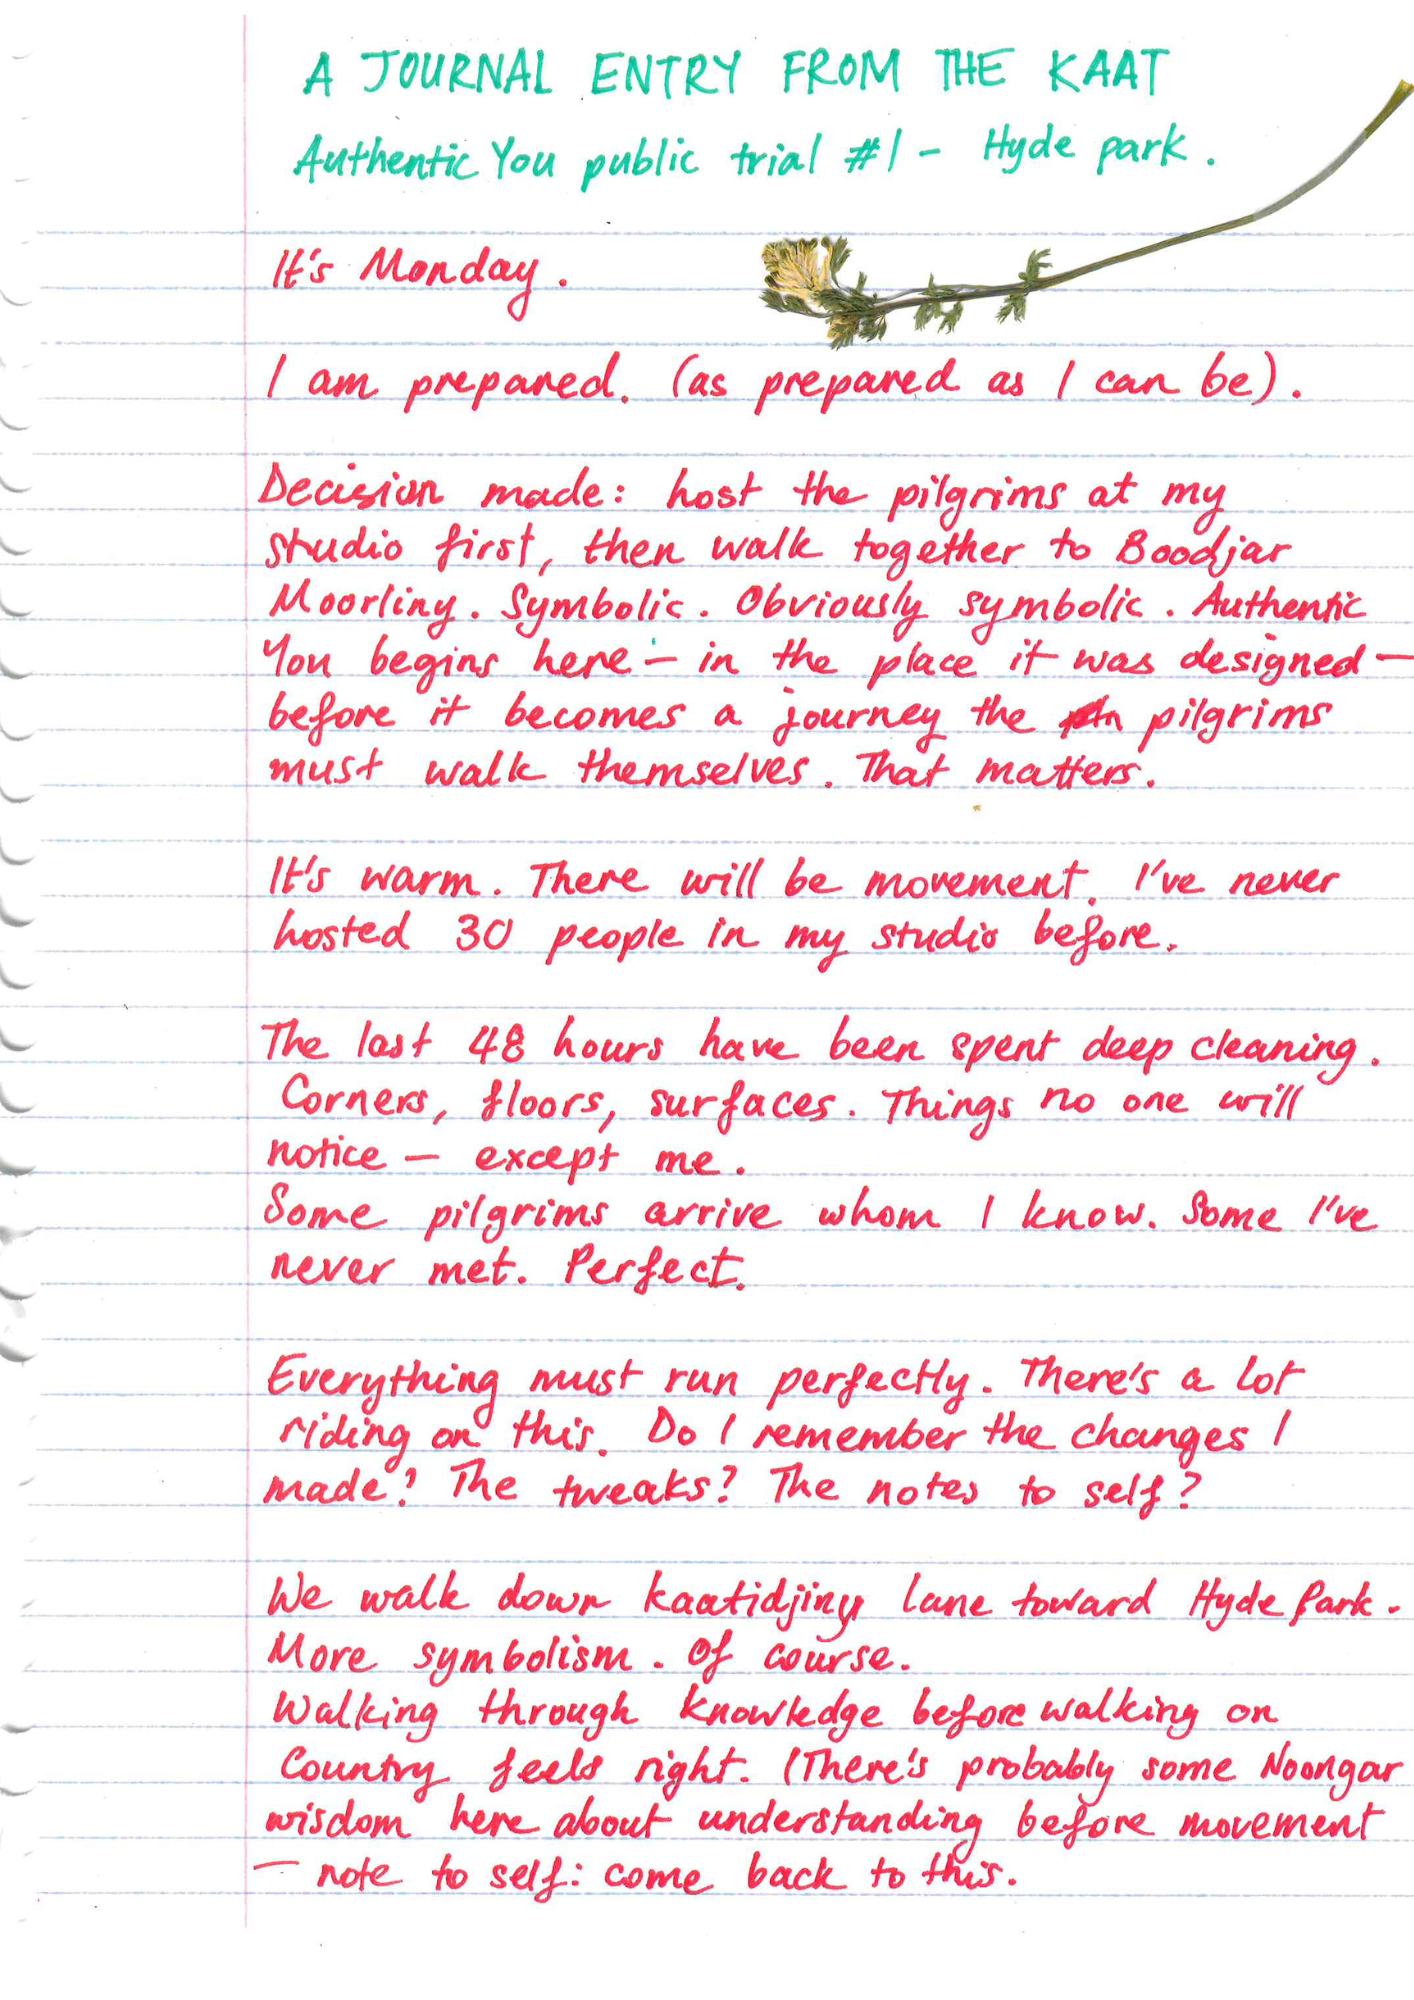 A JOURNAL ENTRY FROM THE KAAT
Authentic You public trial #1 - Hyde park.
It's Monday.
I am prepared. (as prepared as I can be).
Decision made: host the pilgrims at my
studio first, then walk together to Boodjar
Moorliny. Symbolic. Obviously symbolic. Authentic
You begins here - in the place it was designed -
before it becomes a journey the pilgrims
must walk themselves. That matters.
It's warm. There will be movement. I've never
hosted 30 people in my studio before.
The last 48 hours have been spent deep cleaning.
Corners, floors, surfaces. Things no one will
notice - except me.
Some pilgrims arrive whom I know. Some I've
never met. Perfect.
Everything must run perfectly. There's a lot
riding on this. Do I remember the changes I
made? The tweaks? The notes to self?
We walk down Kaatidjiny lane toward Hyde Park.
More symbolism. Of course.
Walking through knowledge before walking on
Country feels right. (There's probably some Noongar
wisdom here about understanding before movement
- note to self: come back to this.